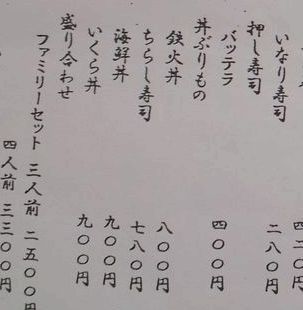 四二〇円
いなり寿司 二八〇円
押し寿司
バッテラ 四〇〇円
丼ぶりもの
鉄火丼 八〇〇円
ちらし寿司 七八〇円
海鮮丼 九〇〇円
いくら丼 九〇〇円
盛り合わせ
ファミリーセット 三人前 二五〇〇円
四人前 三三〇〇円